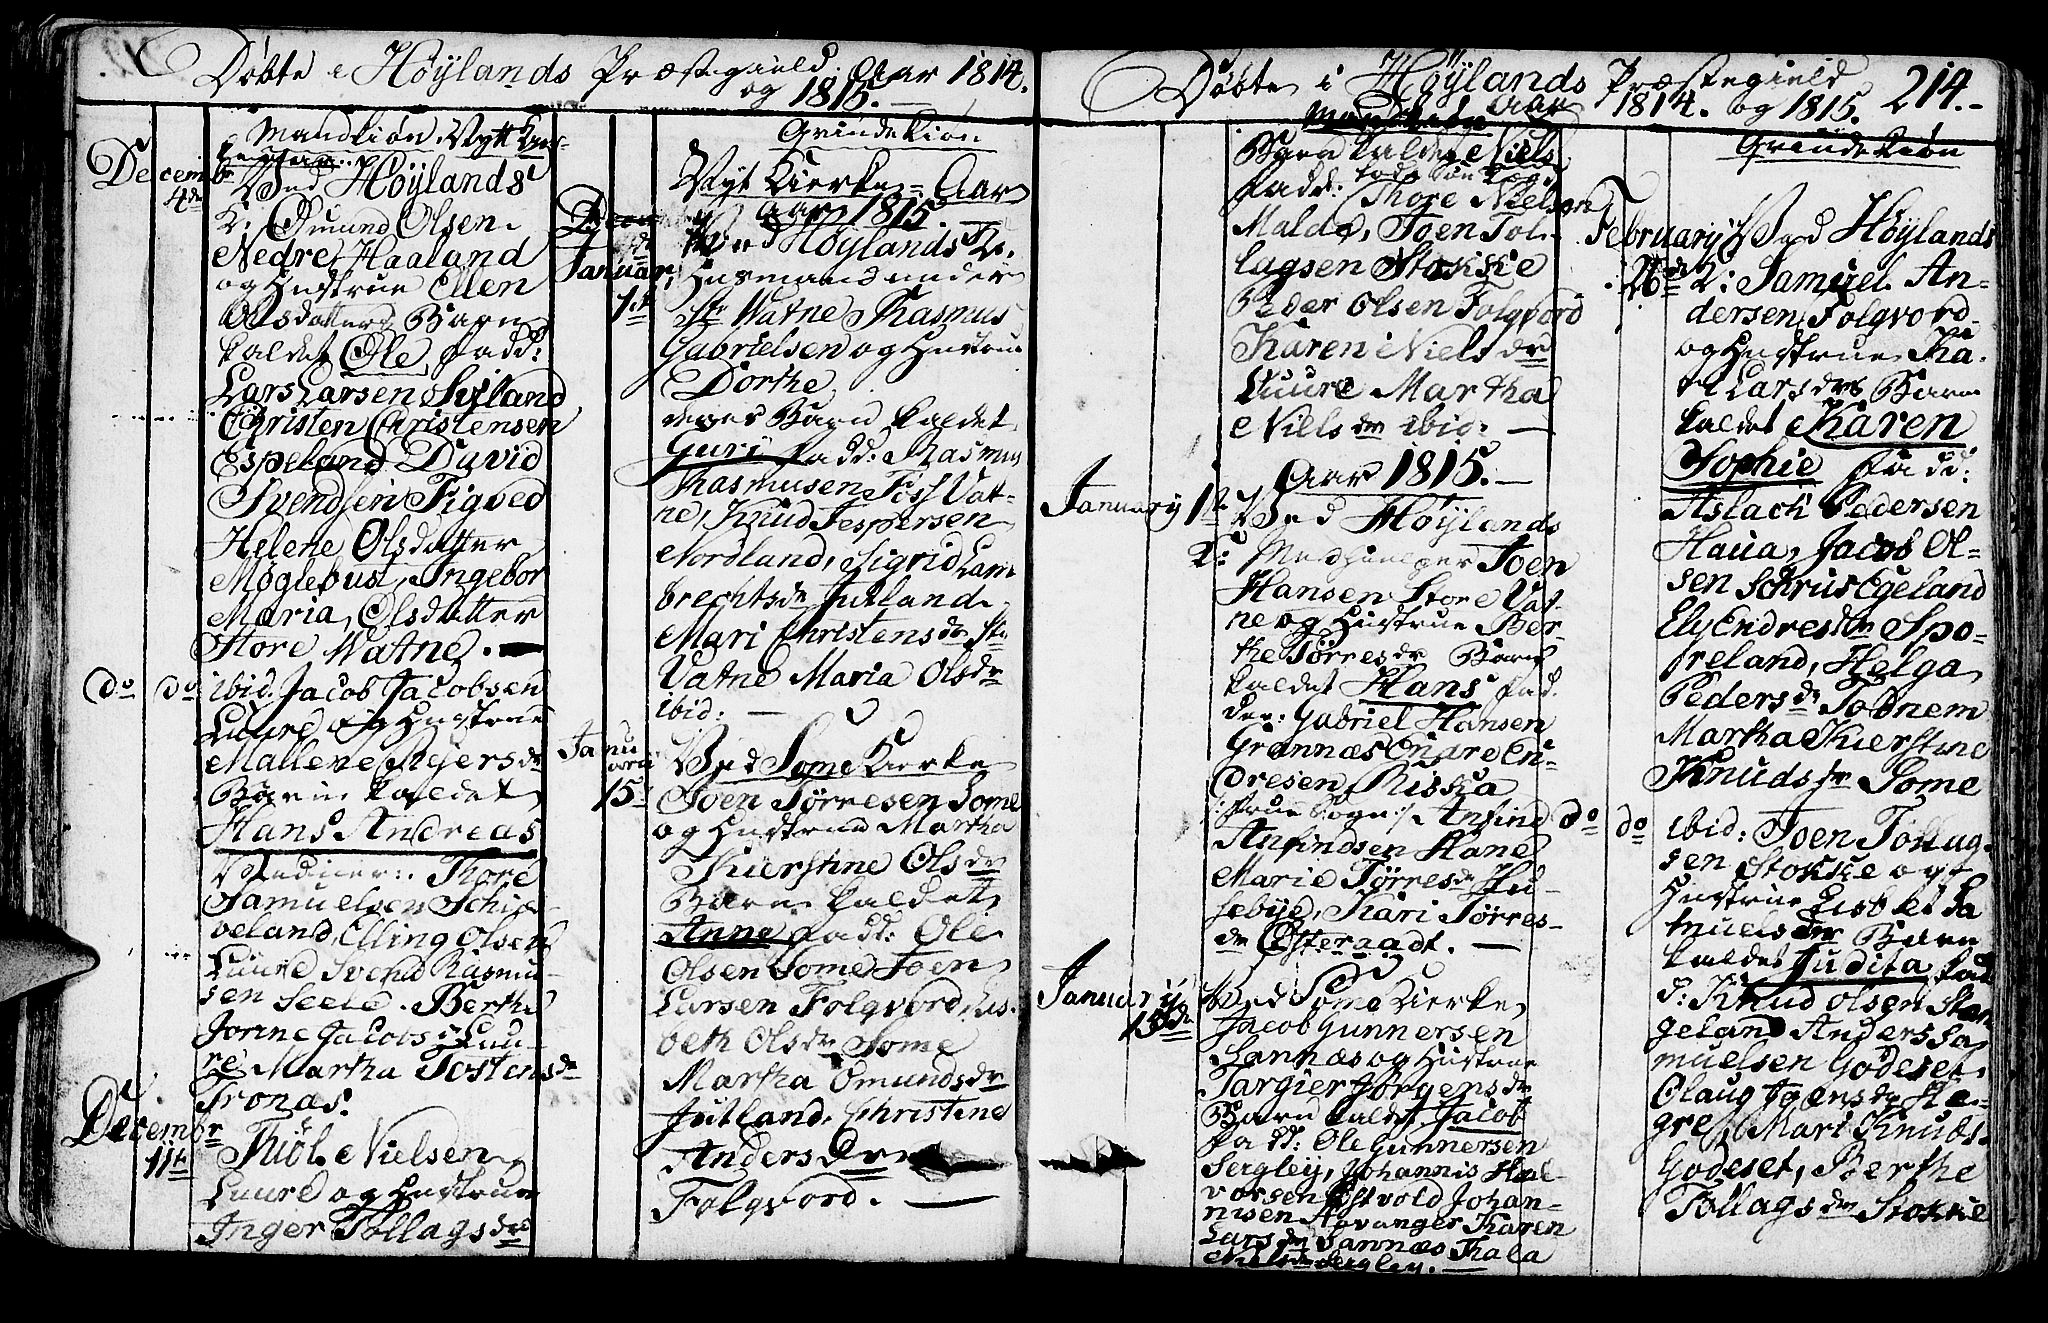 Døbte i Høylands Præstegield Aar 1814.
og 1815.
Mandkiøn. Nytt Kirke-
Decembr 4de Ved Høylands
K: Omund Olsen
Nedre Haaland
og Hustrue Ellen
Olsdatters Barn
kaldet Ole fadd:
Lars Larsen Sviland
Christen Christensen
Espeland David
Svendsen Figved
Helene Olsdatter
Møglebust, Ingebor
Maria, Olsdatter
Store Watne.
do do ibid. Jacob Jacobsen
Luure og Hustrue
Mallene Rejersdr
Barn kaldet
Hans Andreas
Thore
Samuelsen Schif-
veland, Elling Olsen
Luure Svend Rasmu-
sen Seele. Berthe
Jorine Jacobsdr Luu-
re Martha Tostensdr
Tronas.
Decembr 11te Thiøl Nielsen
Luure og Hustrue
Inger Tollagsdr
Qvindekiøn
Nyt Kierke-Aar
Aar 1815
Januar 1ste Ved Høylands K:
Husmand under
Str Watne Rasmus
Gabrielsen og Hustrue
Dorthe
deres Barn kaldet
Guri fadd: Rasmus
Rasmusen Foss Vat-
ne, Knud Jespersen
Nordland, Sigrid Lam
brechtsdr Jutland
Mari Christensdr Str
Vatne Maria Olsdr
ibid:
Januarii 15de Ved Some Kierke
Joen Tørresen Some
og Hustrue Martha
Kierstine Olsdr
Barn kaldet
Anne fadd: Ole
Olsen Some Joen
Larsen Folqvord, Lis-
beth Olsdr Some
Martha Omundsdr
Jutland. Christine
Andersdr
Folqvord.
Døbte i Høylands Præstegield 214.
Aar 1814. og 1815.
Mandkiøn
Barn kaldet Niels
fadd: Thore Nielsen
Malde, Joen Tol-
lagsen Stokke
Peder Olsen Folqvord
Karen Nielsdr
Luure Martha
Nielsdr ibid:
Aar 1815.
Januarij 1ste Ved Høylands
K: Medhielper Joen
Hansen Store Vat-
ne og Hustrue Ber-
the Tørresdr Barn
kaldet Hans fad-
der: Gabriel Hansen
Grannæs Endre En-
dresen Riska
Anfind
Anfindsen Hane
Marie Tørresdr Hu-
sebye, Kari Tørres-
dr Østeraadt.
Januarij 15de Ved Some Kierke
Jacob Gunnersen
Sannæs og Hustrue
Targier Jørgensdr
Barn kaldet Jacob
fadd: Ole Gunnersen
Sergley, Johannis Hal-
vorsen Østvold Johan-
nisen Stavanger Karen
Larsdr Sannæs Thala
Nielsdr Sergley.
Qvindekiøn
Februarij Ved Høylands
K: Samuel An-
dersen Folqvord
og Hustrue Ka-
ri Larsdrs Barn
kaldet Karen
Sophie fadd:
Aslach Pedersen
Haua, Jacob Ol-
sen Schrus Egeland
Ely Endresdr Spo-
freland, Helga
Pedersdr Todnem
Martha Kierstine
Knudsdr Some
do do ibid: Joen Tollag-
sen Stokke og
Hustrue Lisbet Sa
muelsdr Barn
kaldet Judita fad
d: Knud Olsen Stan
geland Anders Sa
muelsen Godeset
Olaug Joensdr He-
gre, Mari Knuds.
Godeset, Berthe
Tollagsdr Stokke